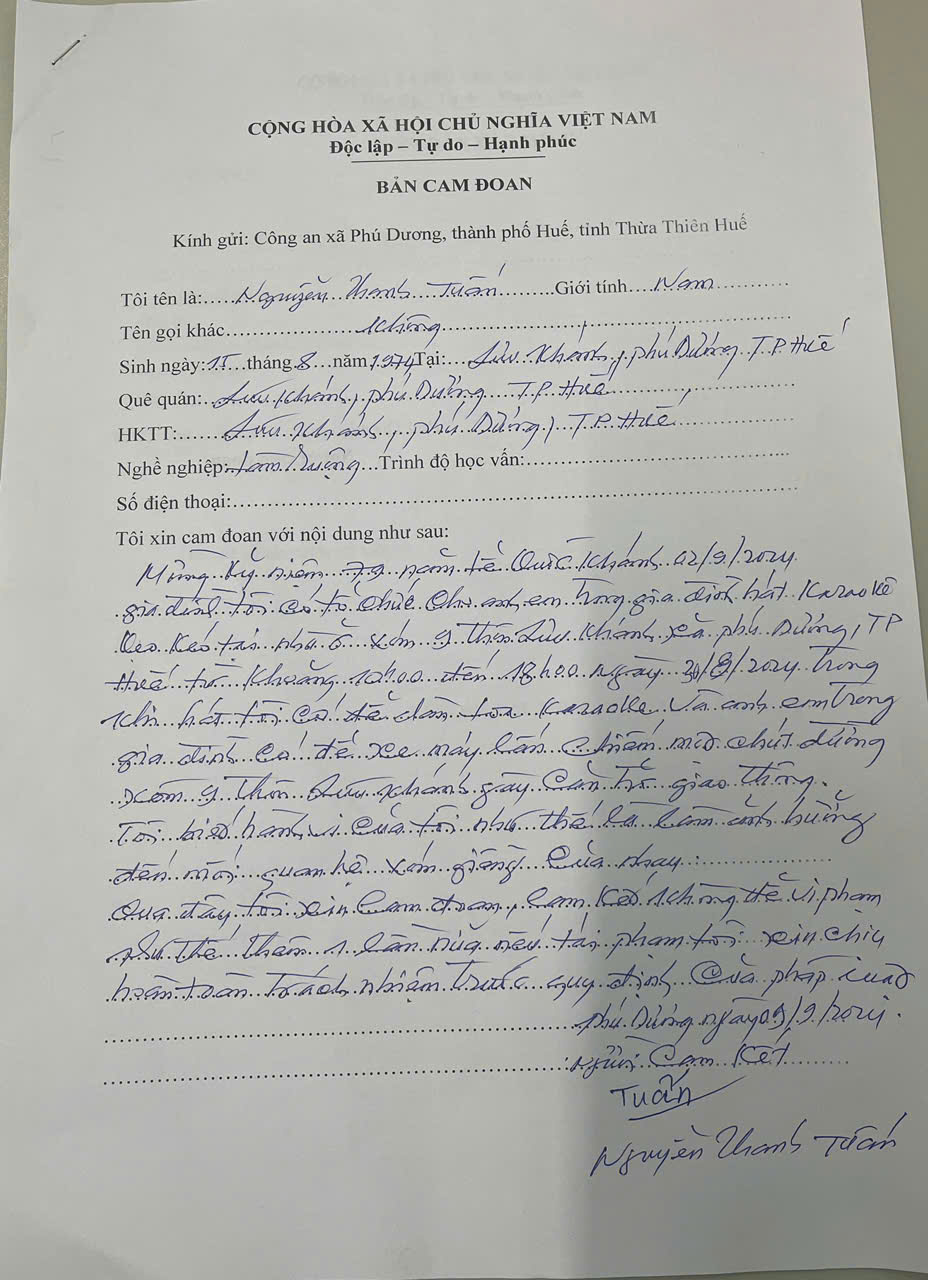 CỘNG HÒA XÃ HỘI CHỦ NGHĨA VIỆT NAM
Độc lập – Tự do – Hạnh phúc
BẢN CAM ĐOAN
Kính gửi: Công an xã Phú Dương, thành phố Huế, tỉnh Thừa Thiên Huế
Tôi tên là: Nguyễn Thanh Tuấn Giới tính Nam
Tên gọi khác không
Sinh ngày: 15 tháng 8 năm 1974 Tại: Lưu Khánh, Phú Dương T.P Huế
Quê quán: Lưu Khánh, Phú Dương T.P Huế
HKTT: Lưu Khánh, Phú Dương, T.P Huế
Nghề nghiệp: Làm ruộng Trình độ học vấn:
Số điện thoại:
Tôi xin cam đoan với nội dung như sau:
Mừng kỷ niệm 79 năm lễ Quốc Khánh 02/9/2024
gia đình tôi có tổ chức cho anh em trong gia đình hát Karaokê
kẹo kéo tại nhà ở xóm 9 thôn Lưu Khánh xã Phú Dương, TP
Huế từ khoảng h00 đến 18h00 ngày /2024 trong
khi hát tôi có để dàn loa Karaoke và anh em trong
gia đình có để xe máy lấn chiếm một chút đường
xóm 9 thôn Lưu Khánh gây cản trở giao thông.
Tôi biết hành vi của tôi như thế là làm ảnh hưởng
đến mối quan hệ xóm giềng của nhau
Qua đây tôi xin cam đoan, cam kết không để vi phạm
như thế thêm 1 lần nữa nếu tái phạm tôi xin chịu
hoàn toàn trách nhiệm trước quy định của pháp luật
Phú Dương ngày 09/9/2024.
Người Cam Kết
Tuấn
Nguyễn Thanh Tuấn